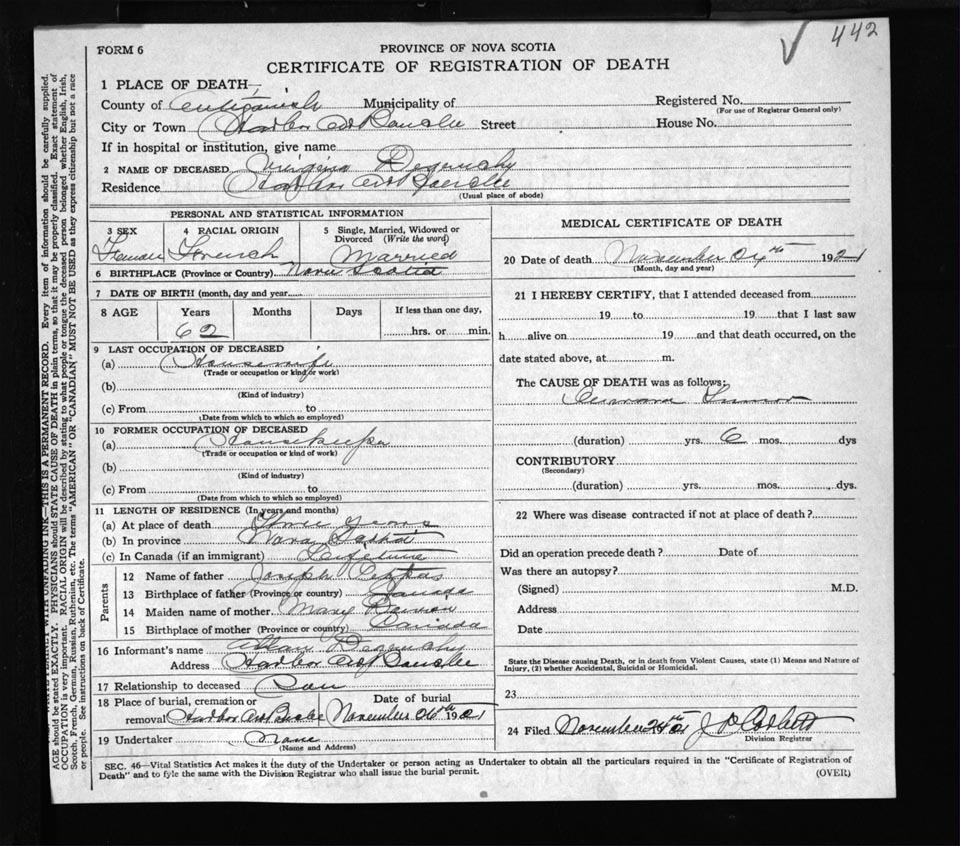 442
FORM 6
PROVINCE OF NOVA SCOTIA
CERTIFICATE OF REGISTRATION OF DEATH
1 PLACE OF DEATH
County of Antigonish Municipality of
Registered No.
(For use of Registrar General only)
City or Town Harbor Street House No.
If in hospital or institution, give name
2 NAME OF DECEASED Virginia
Residence Harbor
(Usual place of abode)
PERSONAL AND STATISTICAL INFORMATION
3 SEX 4 RACIAL ORIGIN 5 Single, Married, Widowed or Divorced (Write the word)
Female French Married
6 BIRTHPLACE (Province or Country) Nova Scotia
7 DATE OF BIRTH (month, day and year)
8 AGE Years Months Days If less than one day,
62 hrs. or min.
9 LAST OCCUPATION OF DECEASED
(a) Housewife
(Trade or occupation or kind of work)
(b)
(Kind of industry)
(c) From to
(Date from which to which so employed)
10 FORMER OCCUPATION OF DECEASED
(a) Housekeeper
(Trade or occupation or kind of work)
(b)
(Kind of industry)
(c) From to
(Date from which to which so employed)
11 LENGTH OF RESIDENCE (In years and months)
(a) At place of death years
(b) In province Nova Scotia
(c) In Canada (if an immigrant) Lifetime
Parents
12 Name of father Joseph
13 Birthplace of father (Province or country) Canada
14 Maiden name of mother Mary
15 Birthplace of mother (Province or country) Canada
16 Informant's name
Address Harbor
17 Relationship to deceased Son
18 Place of burial, cremation or removal Date of burial
Harbor November 26th 1921
19 Undertaker None
(Name and Address)
MEDICAL CERTIFICATE OF DEATH
20 Date of death November 24th 1921
(Month, day and year)
21 I HEREBY CERTIFY, that I attended deceased from
19 to 19 that I last saw
h alive on 19 and that death occurred, on the
date stated above, at m.
The CAUSE OF DEATH was as follows:
Tumor
(duration) yrs. 6 mos. dys
CONTRIBUTORY
(Secondary)
(duration) yrs. mos. dys.
22 Where was disease contracted if not at place of death?
Did an operation precede death? Date of
Was there an autopsy?
(Signed) M.D.
Address
Date
State the Disease causing Death, or in death from Violent Causes, state (1) Means and Nature of
Injury, (2) whether Accidental, Suicidal or Homicidal.
23
24 Filed November 24th 21
Division Registrar
SEC. 46—Vital Statistics Act makes it the duty of the Undertaker or person acting as Undertaker to obtain all the particulars required in the "Certificate of Registration of
Death" and to fyle the same with the Division Registrar who shall issue the burial permit.
(OVER)
WITH UNFADING INK—THIS IS A PERMANENT RECORD. Every item of information should be carefully supplied.
AGE should be stated EXACTLY. PHYSICIANS should STATE CAUSE OF DEATH in plain terms, so that it may be properly classified. Exact statement of
OCCUPATION is very important. RACIAL ORIGIN will be described by stating to what people or tongue the deceased person belonged whether English, Irish,
Scotch, French, German, Russian, Ruthenian, etc. The terms "AMERICAN" OR "CANADIAN" MUST NOT BE USED as they express citizenship but not a race
or people. See instructions on back of Certificate.